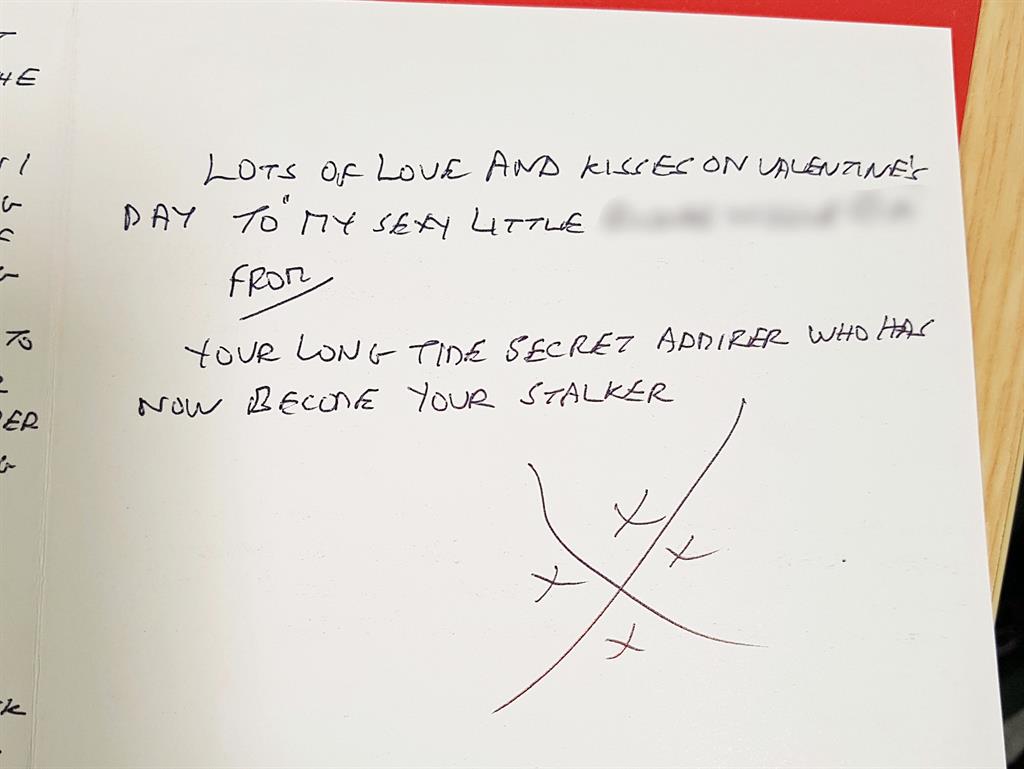 HE
TO
LOTS OF LOVE AND KISSES ON VALENTINE'S
DAY TO" MY SEXY LITTLE
FROM
YOUR LONG TIME SECRET ADMIRER WHO HAS
NOW BECOME YOUR STALKER
X
X
X
X
X